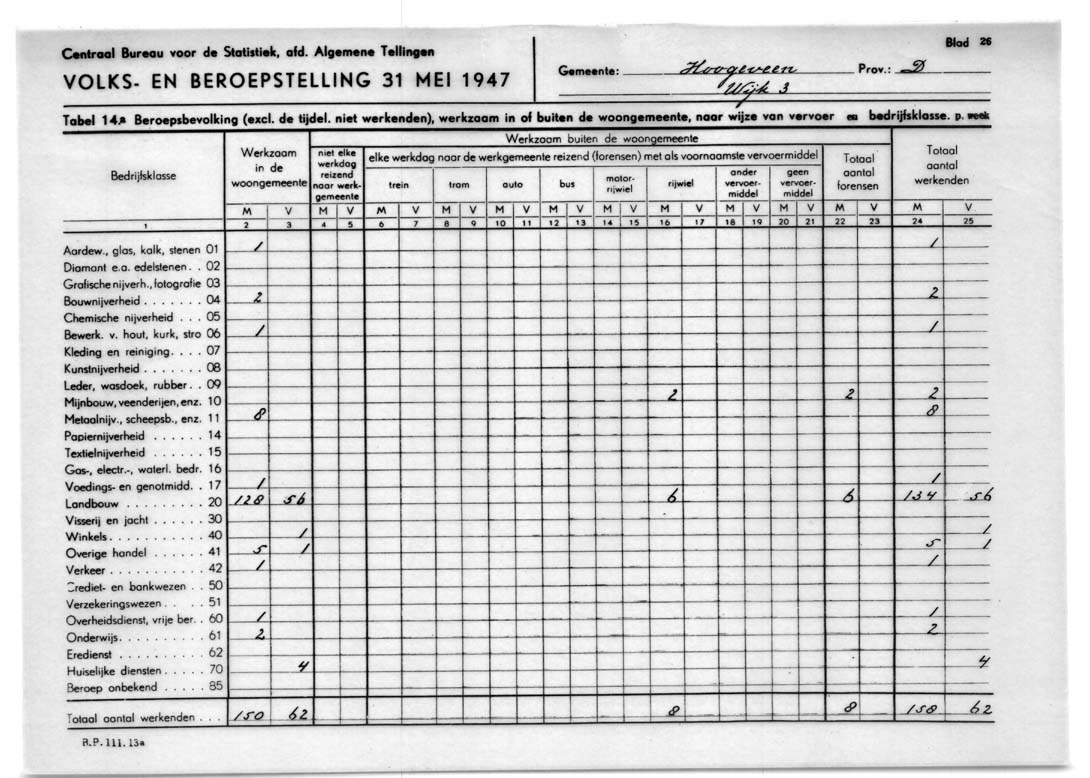 Centraal Bureau voor de Statistiek, afd. Algemene Tellingen
VOLKS- EN BEROEPSTELLING 31 MEI 1947
Gemeente: Hoogeveen Prov.: D
Wijk 3
Blad 26
Tabel 14.a Beroepsbevolking (excl. de tijdel. niet werkenden), werkzaam in of buiten de woongemeente, naar wijze van vervoer en bedrijfsklasse. p. week
Bedrijfsklasse
Werkzaam in de woongemeente
Werkzaam buiten de woongemeente
niet elke werkdag reizend naar werkgemeente
elke werkdag naar de werkgemeente reizend (forensen) met als voornaamste vervoermiddel
trein tram auto bus motor-rijwiel rijwiel ander vervoer-middel geen vervoer-middel
Totaal aantal forensen
Totaal aantal werkenden
M V M V M V M V M V M V M V M V M V M V M V M V
1 2 3 4 5 6 7 8 9 10 11 12 13 14 15 16 17 18 19 20 21 22 23 24 25
Aardew., glas, kalk, stenen 01 1 1
Diamant e.a. edelstenen. . 02
Grafische nijverh., fotografie 03
Bouwnijverheid . . . . . . . 04 2 2
Chemische nijverheid . . . 05
Bewerk. v. hout, kurk, stro 06 1 1
Kleding en reiniging. . . . 07
Kunstnijverheid . . . . . . . 08
Leder, wasdoek, rubber. . 09
Mijnbouw, veenderijen, enz. 10 2 2 2
Metaalnijv., scheepsb., enz. 11 8 8
Papiernijverheid . . . . . . 14
Textielnijverheid . . . . . . 15
Gas-, electr.-, waterl. bedr. 16
Voedings- en genotmidd. . 17 1 1
Landbouw . . . . . . . . . 20 128 56 6 6 134 56
Visserij en jacht . . . . . . 30
Winkels. . . . . . . . . . . 40 1 1
Overige handel . . . . . . 41 5 1 5 1
Verkeer . . . . . . . . . . 42 1 1
Crediet- en bankwezen . . 50
Verzekeringswezen . . . 51
Overheidsdienst, vrije ber. . 60 1 1
Onderwijs. . . . . . . . . . 61 2 2
Eredienst . . . . . . . . . 62
Huiselijke diensten . . . . . 70 4 4
Beroep onbekend . . . . . 85
Totaal aantal werkenden . . . 150 62 8 8 158 62
R.P. 111. 13a